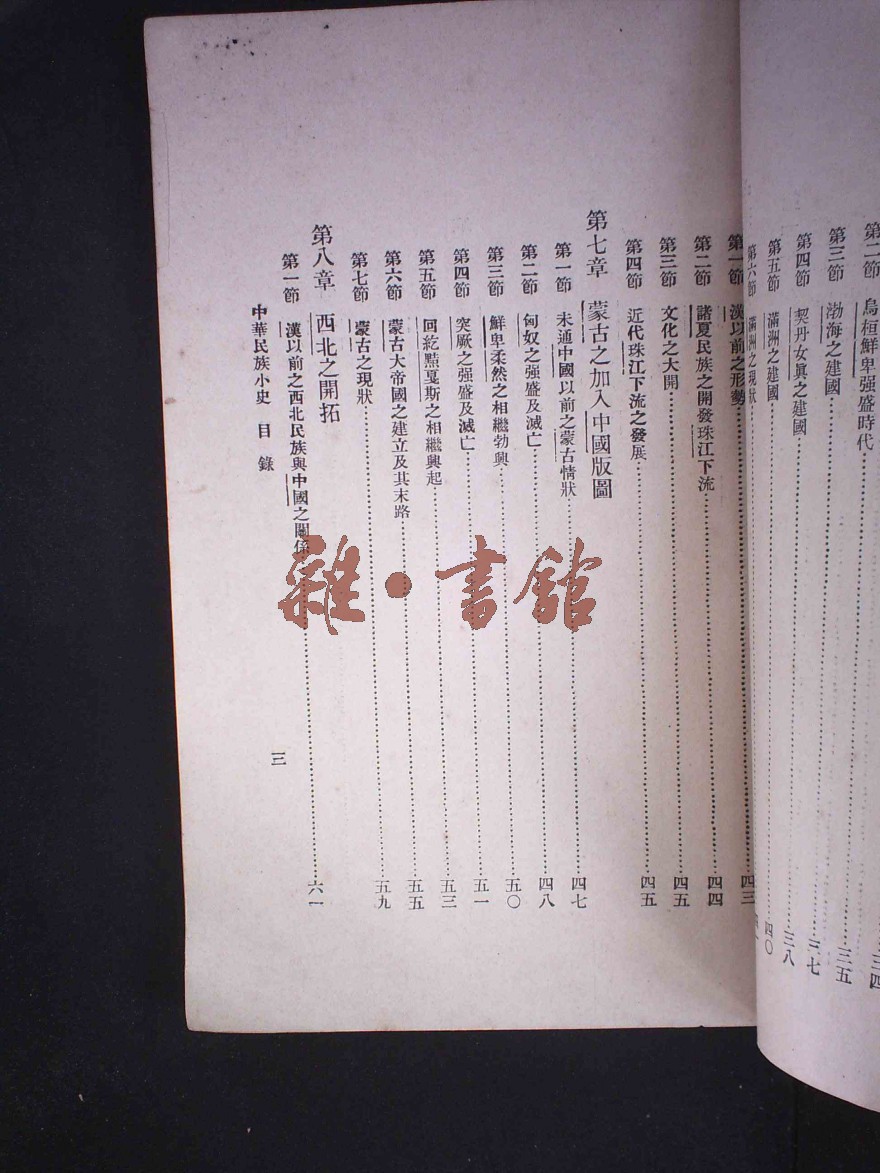 第二節 烏桓鮮卑强盛時代……三四
第三節 渤海之建國……三五
第四節 契丹女眞之建國……三七
第五節 滿洲之建國……三八
第六節 滿洲之現狀……四〇
第一節 漢以前之形勢……四三
第二節 諸夏民族之開發珠江下流……四四
第三節 文化之大開……四五
第四節 近代珠江下流之發展……四五
第七章 蒙古之加入中國版圖
第一節 未通中國以前之蒙古情狀……四七
第二節 匈奴之强盛及滅亡……四八
第三節 鮮卑柔然之相繼勃興……五〇
第四節 突厥之强盛及滅亡……五一
第五節 回紇黠戛斯之相繼興起……五三
第六節 蒙古大帝國之建立及其末路……五五
第七節 蒙古之現狀……五九
第八章 西北之開拓
第一節 漢以前之西北民族與中國之關係……六一
中華民族小史 目錄
三
雜·書館